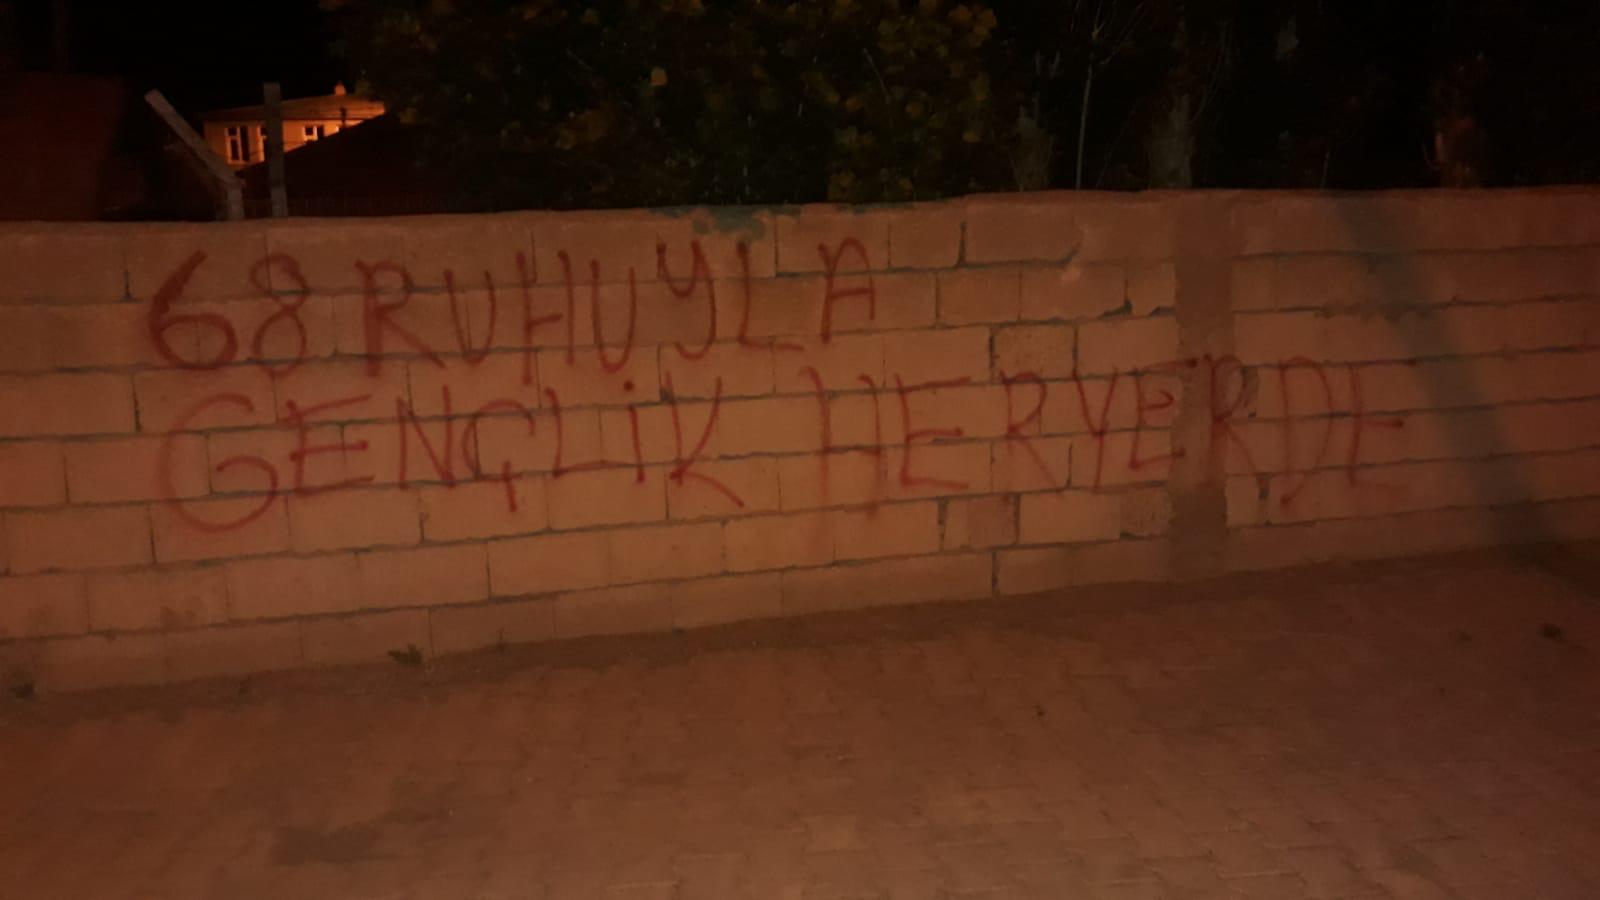 68 RUHUYLA
GENÇLİK HERYERDE